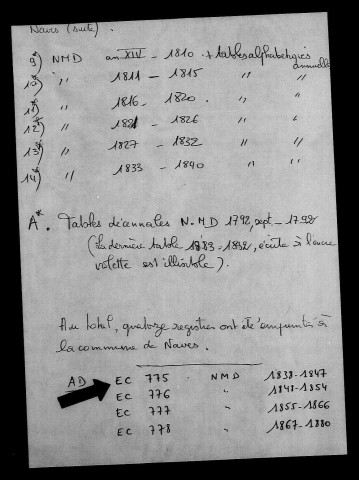 Naves (suite).
9*) NMD an XIV - 1810 + tables alphabétiques annuelles
10*) " 1811 - 1815 " "
11*) " 1816 - 1820 . " "
12*) " 1821 - 1826 " "
13*) " 1827 - 1832 " "
14*) " 1833 - 1840 " "
A* . Tables décennales N.MD 1792, sept - 1792
(La dernière table 1883-1892, écrite à l'encre
violette est illisible).
Au total, quatorze registres ont été empruntés à
la commune de Naves.
AD EC 775 NMD 1838-1847
EC 776 " 1848-1854
EC 777 " 1855-1866
EC 778 " 1867-1880